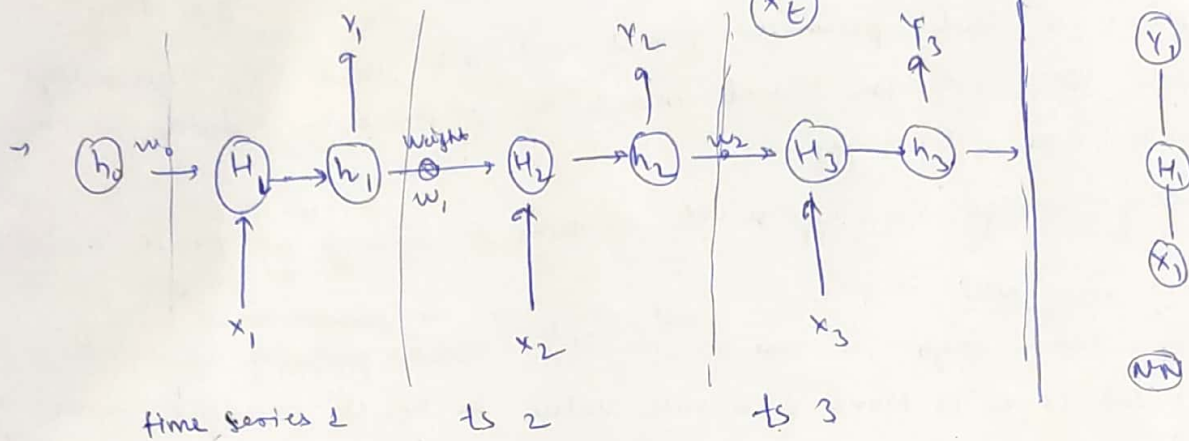 x t
Y1 Y2 Y3 Y1
h0 w0 H1 h1 Weight w1 H2 h2 w2 H3 h3 H1
x1 x2 x3 X1
NN
time series 1 ts 2 ts 3